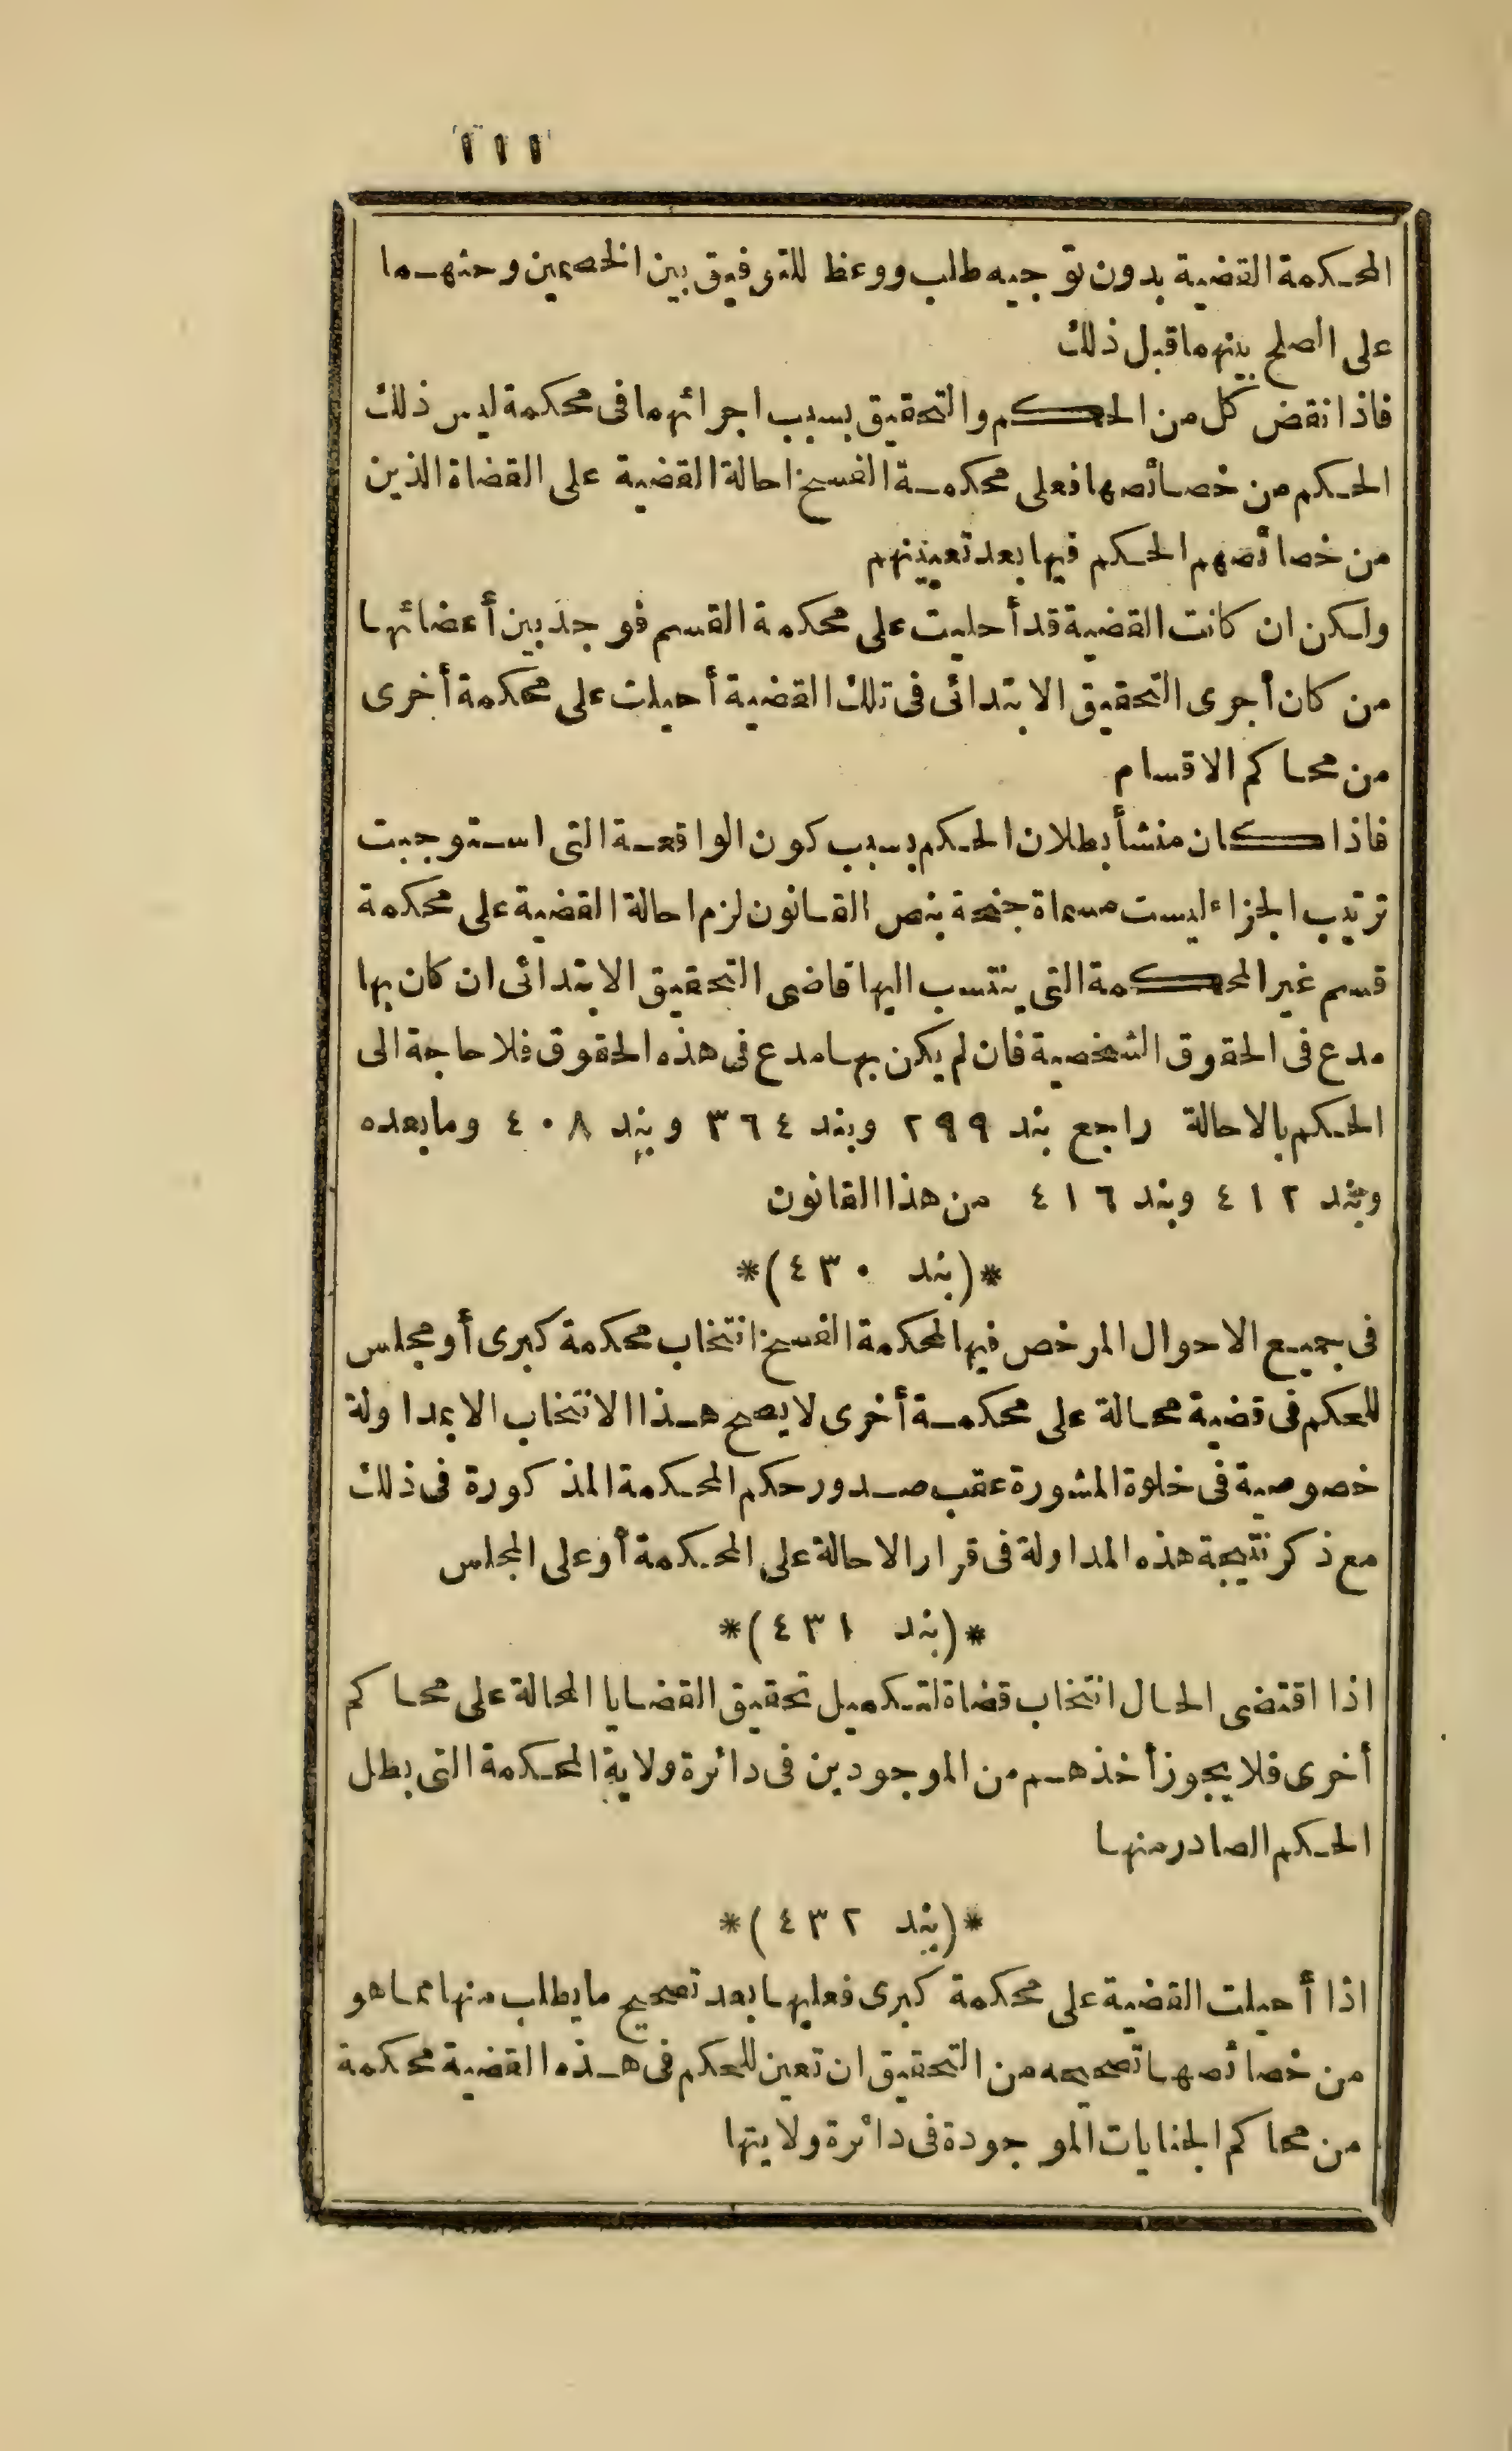 ١١١
المحكمة القضية بدون توجيه طلب ووعظ للتوفيق بين الخصمين وحثهما
على الصلح بينهما قبل ذلك
فاذا نقض كل من الحكم والتحقيق بسبب اجرائهما فى محكمة ليس ذلك
الحكم من خصائصها فعلى محكمة الفسخ احالة القضية على القضاة الذين
من خصائصهم الحكم فيها بعد تعيينهم
ولكن ان كانت القضية قد أحليت على محكمة القسم فوجد بين أعضائها
من كان أجرى التحقيق الابتدائى فى تلك القضية أحيلت على محكمة أخرى
من محاكم الاقسام
فاذا كان منشأ بطلان الحكم بسبب كون الواقعة التى استوجبت
ترتيب الجزاء ليست مسماة جنحة بنص القانون لزم احالة القضية على محكمة
قسم غير المحكمة التى ينتسب اليها قاضى التحقيق الابتدائى ان كان بها
مدع فى الحقوق الشخصية فان لم يكن بها مدع فى هذه الحقوق فلا حاجة الى
الحكم بالاحالة راجع بند ٢٩٩ وبند ٣٦٤ وبند ٤٠٨ وما بعده
وبند ٤١٢ وبند ٤١٦ من هذا القانون
*(بند ٤٣٠)*
فى جميع الاحوال المرخص فيها لمحكمة الفسخ انتخاب محكمة كبرى أو مجلس
للحكم فى قضية محالة على محكمة أخرى لا يصح هذا الانتخاب الا بمداولة
خصوصية فى خلوة المشورة عقب صدور حكم المحكمة المذكورة فى ذلك
مع ذكر نتيجة هذه المداولة فى قرار الاحالة على المحكمة أو على المجلس
*(بند ٤٣١)*
اذا اقتضى الحال انتخاب قضاة لتكميل تحقيق القضايا المحالة على محاكم
أخرى فلا يجوز أخذهم من الموجودين فى دائرة ولاية المحكمة التى بطل
الحكم الصادر منها
*(بند ٤٣٢)*
اذا أحيلت القضية على محكمة كبرى فعليها بعد تصحيح ما يطلب منها مما هو
من خصائصها تصحيحه من التحقيق ان تعين للحكم فى هذه القضية محكمة
من محاكم الجنايات الموجودة فى دائرة ولايتها